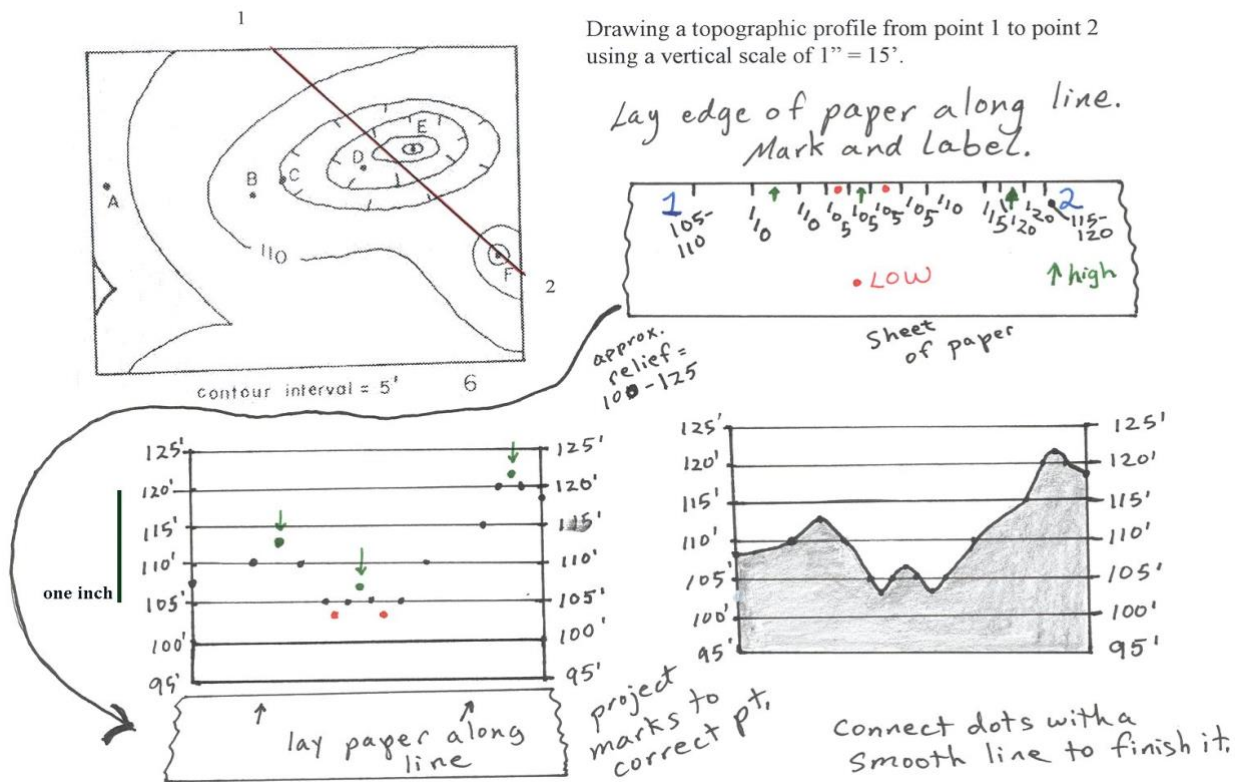 1
Drawing a topographic profile from point 1 to point 2
using a vertical scale of 1” = 15’.
Lay edge of paper along line.
Mark and label.
A
B
C
D
E
F
110
2
contour interval = 5'
6
1
105-
110
110
110
105
105
105
105
110
115
120
120
2
115-
120
LOW
high
Sheet
of paper
approx.
relief =
100-125
125'
120'
115'
110'
105'
100'
95'
125'
120'
115'
110'
105'
100'
95'
one inch
lay paper along
line
project
marks to
correct pt.
125'
120'
115'
110'
105'
100'
95'
125'
120'
115'
110'
105'
100'
95'
Connect dots with a
smooth line to finish it.